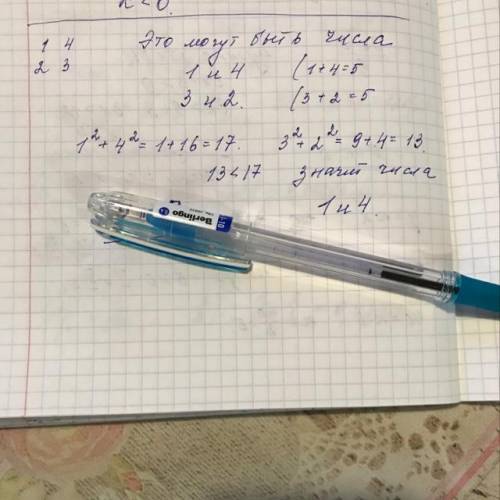 1 4 Это могут быть числа
2 3 1 и 4 (1+4=5
3 и 2. (3+2=5
1²+4²=1+16=17. 3²+2²=9+4=13.
13<17 значит числа
1 и 4.
Berlingo